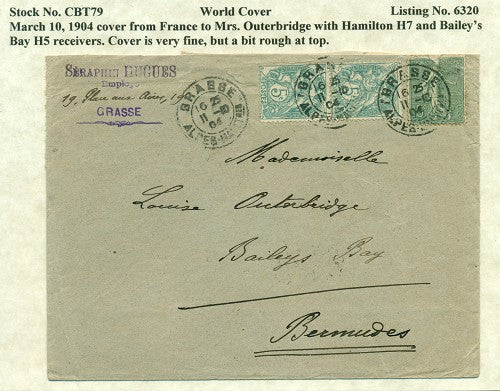 Stock No. CBT79 World Cover Listing No. 6320
March 10, 1904 cover from France to Mrs. Outerbridge with Hamilton H7 and Bailey's
Bay H5 receivers. Cover is very fine, but a bit rough at top.
SÉRAPHIN HUGUES
Employé
19, Place aux Aires, 19
GRASSE
GRASSE
ALPES-MAR
GRASSE
5
5
GRASSE
ALPES-MAR
Mademoiselle
Louise Outerbridge
Baileys Bay
Bermudes